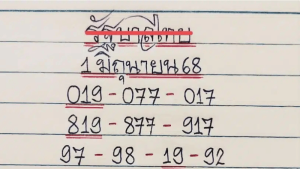 รัฐบาลไทย
1 มิถุนายน 68
019 - 077 - 017
819 - 877 - 917
97 - 98 - 19 - 92